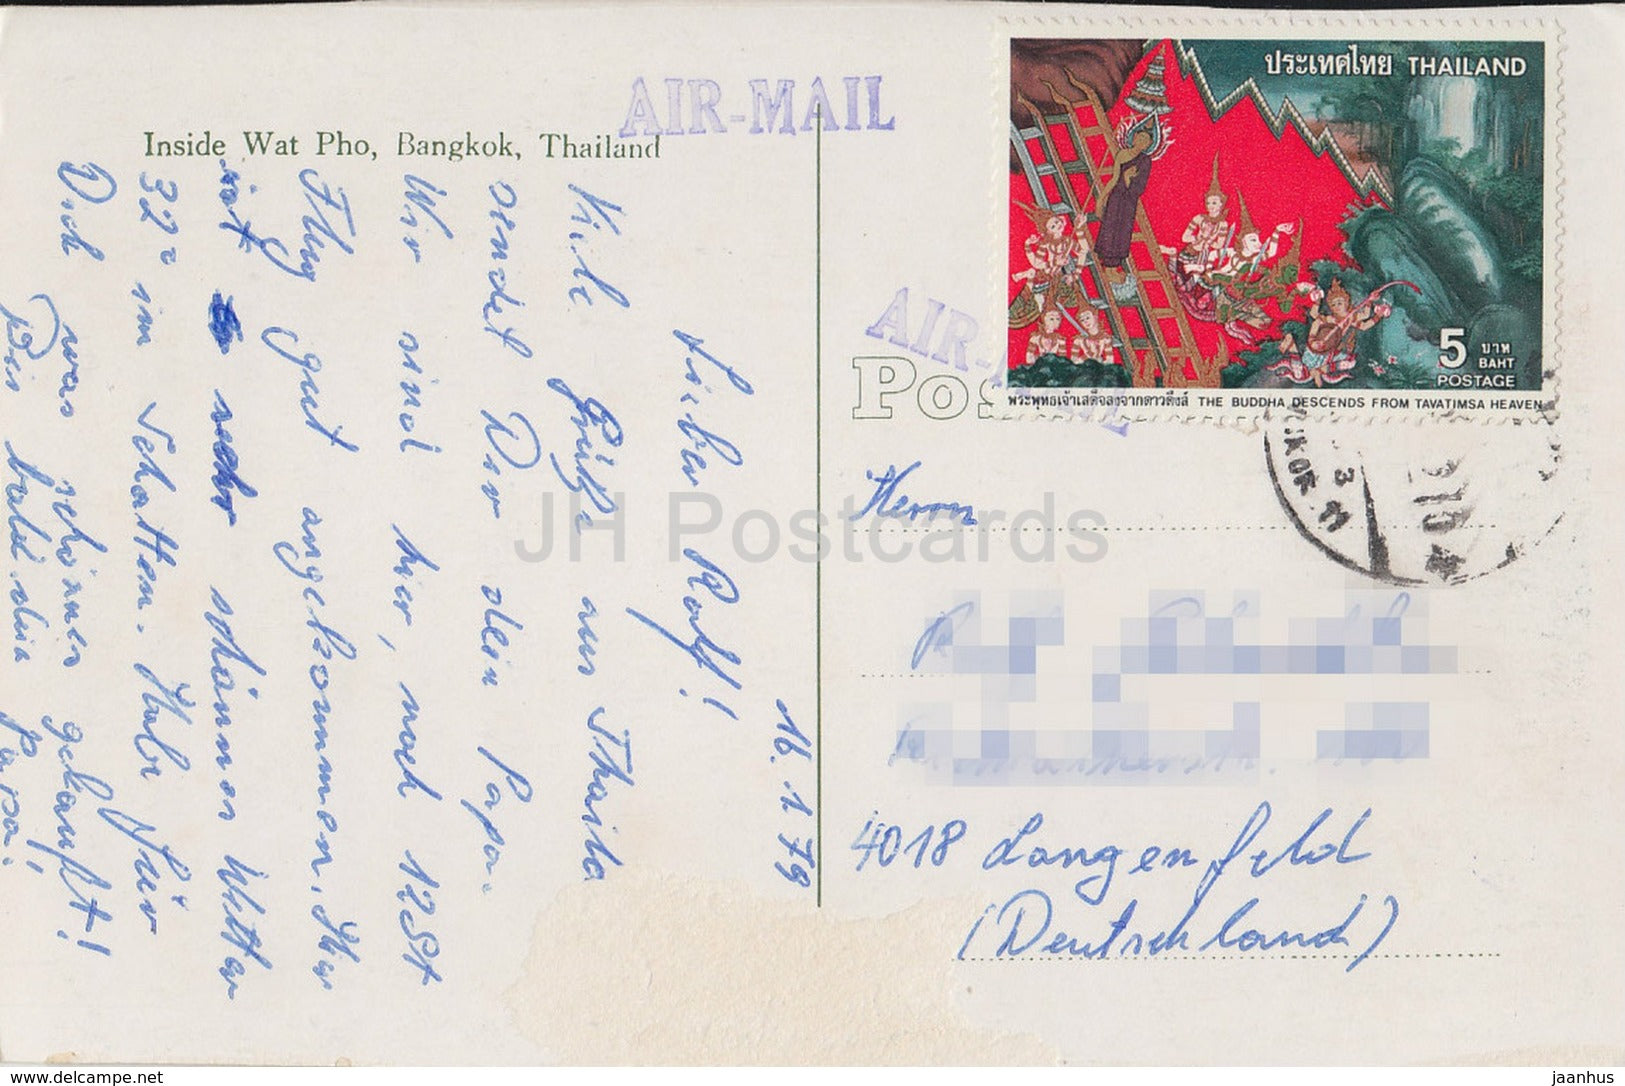 Inside Wat Pho, Bangkok, Thailand
AIR-MAIL
ประเทศไทย THAILAND
5 บาท
BAHT
POSTAGE
พระพุทธเจ้าเสด็จลงจากดาวดึงส์ THE BUDDHA DESCENDS FROM TAVATIMSA HEAVEN
AIR-MAIL
Pos
16.1.79
Lieber Rolf!
Viele Grüße aus Thaila
sendet Dir dein Papa.
Wir sind hier, nach 12 St
Flug gut angekommen. Hier
ist sehr schönes Wetter
32° im Schatten. Habe für
Dich was schönes gekauft!
Bis bald dein Papa.
Herrn
4018 Langenfeld
(Deutschland)
JH Postcards
www.delcampe.net
jaanhus